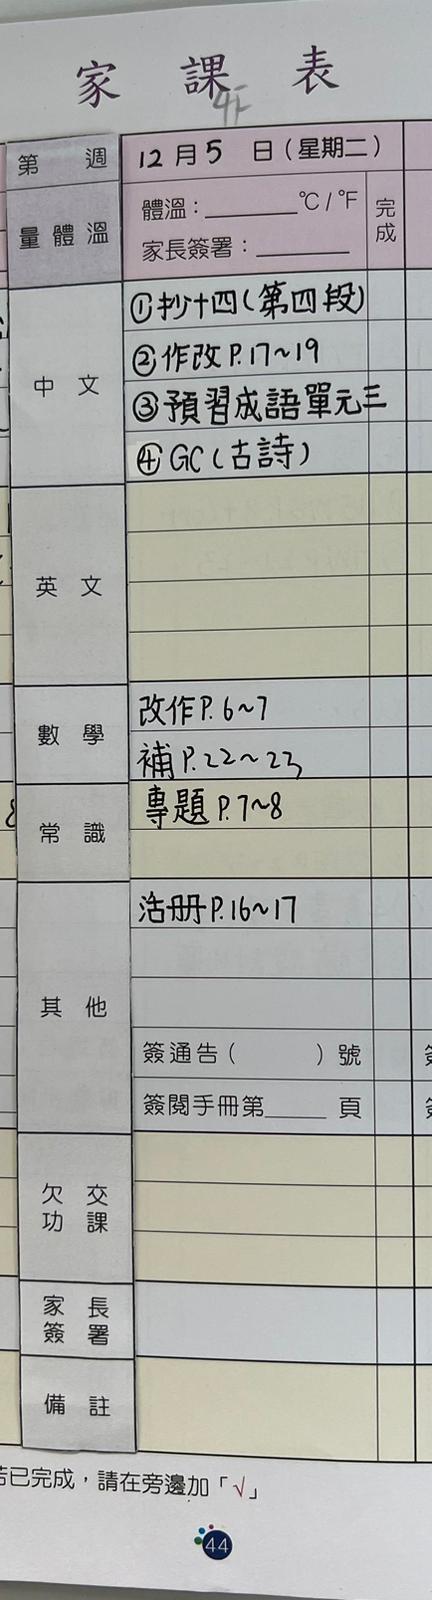 家課表
4F
第 週
12月5日(星期二)
量體溫
體溫：______°C/°F
家長簽署：______
完成
中文
①抄十四(第四段)
②作改P.17~19
③預習成語單元三
④GC(古詩)
英文
數學
改作P.6~7
補P.22~23
常識
專題P.7~8
其他
活冊P.16~17
簽通告( )號
簽閱手冊第____頁
欠交功課
家長簽署
備註
已完成，請在旁邊加「√」
44